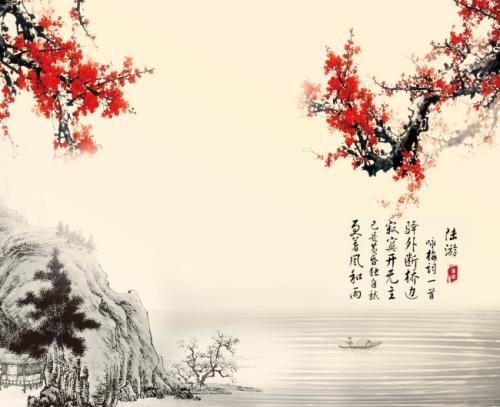 陆游
咏梅词一首
驿外断桥边
寂寞开无主
已是黄昏独自愁
更著风和雨